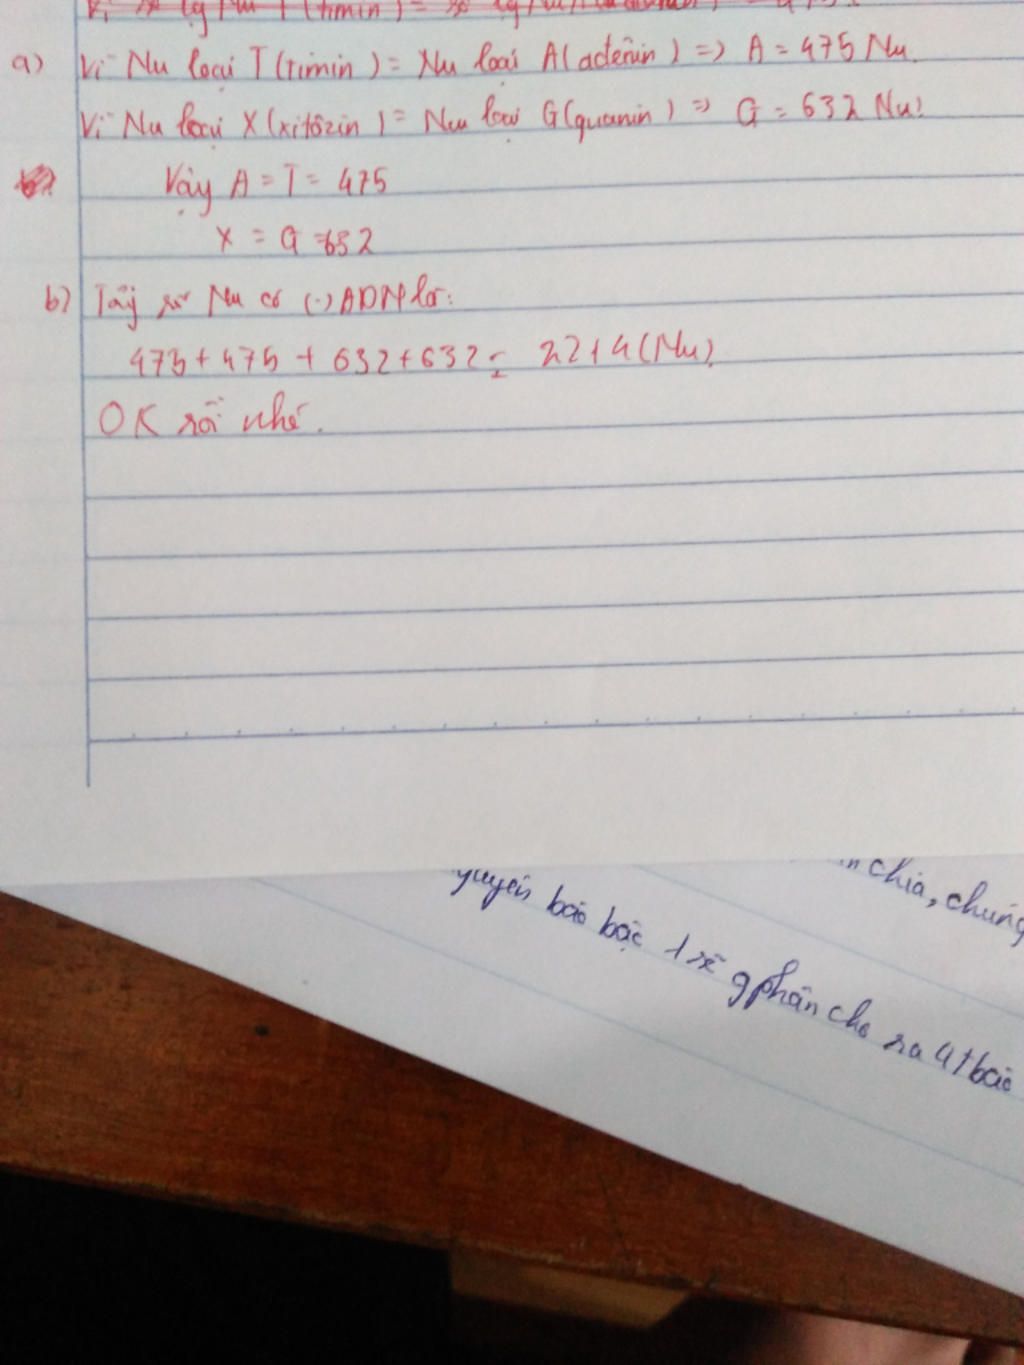 a) Vì Nu loại T (timin) = Nu loại A (adenin) => A = 475 Nu.
Vì Nu loại X (xitôzin) = Nu loại G (guanin) => G = 632 Nu.
Vậy A = T = 475
X = G = 632
b) Tổng số Nu có (.) ADN là:
475 + 475 + 632 + 632 = 2214 (Nu).
OK rồi nhé.
chia, chúng
bào bậc 1 sẽ gphân cho ra 4 tbào